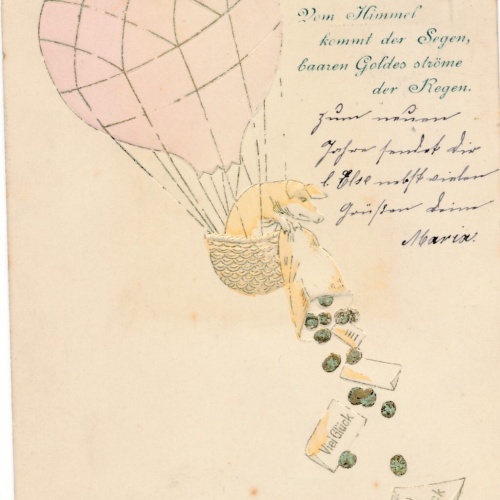 Vom Himmel
kommt der Segen,
baaren Goldes ströme
der Regen.
Zum neuen
Jahre sendet Dir
l. Else nebst vielen
Grüßen deine
Maria.
Viel Glück
ck